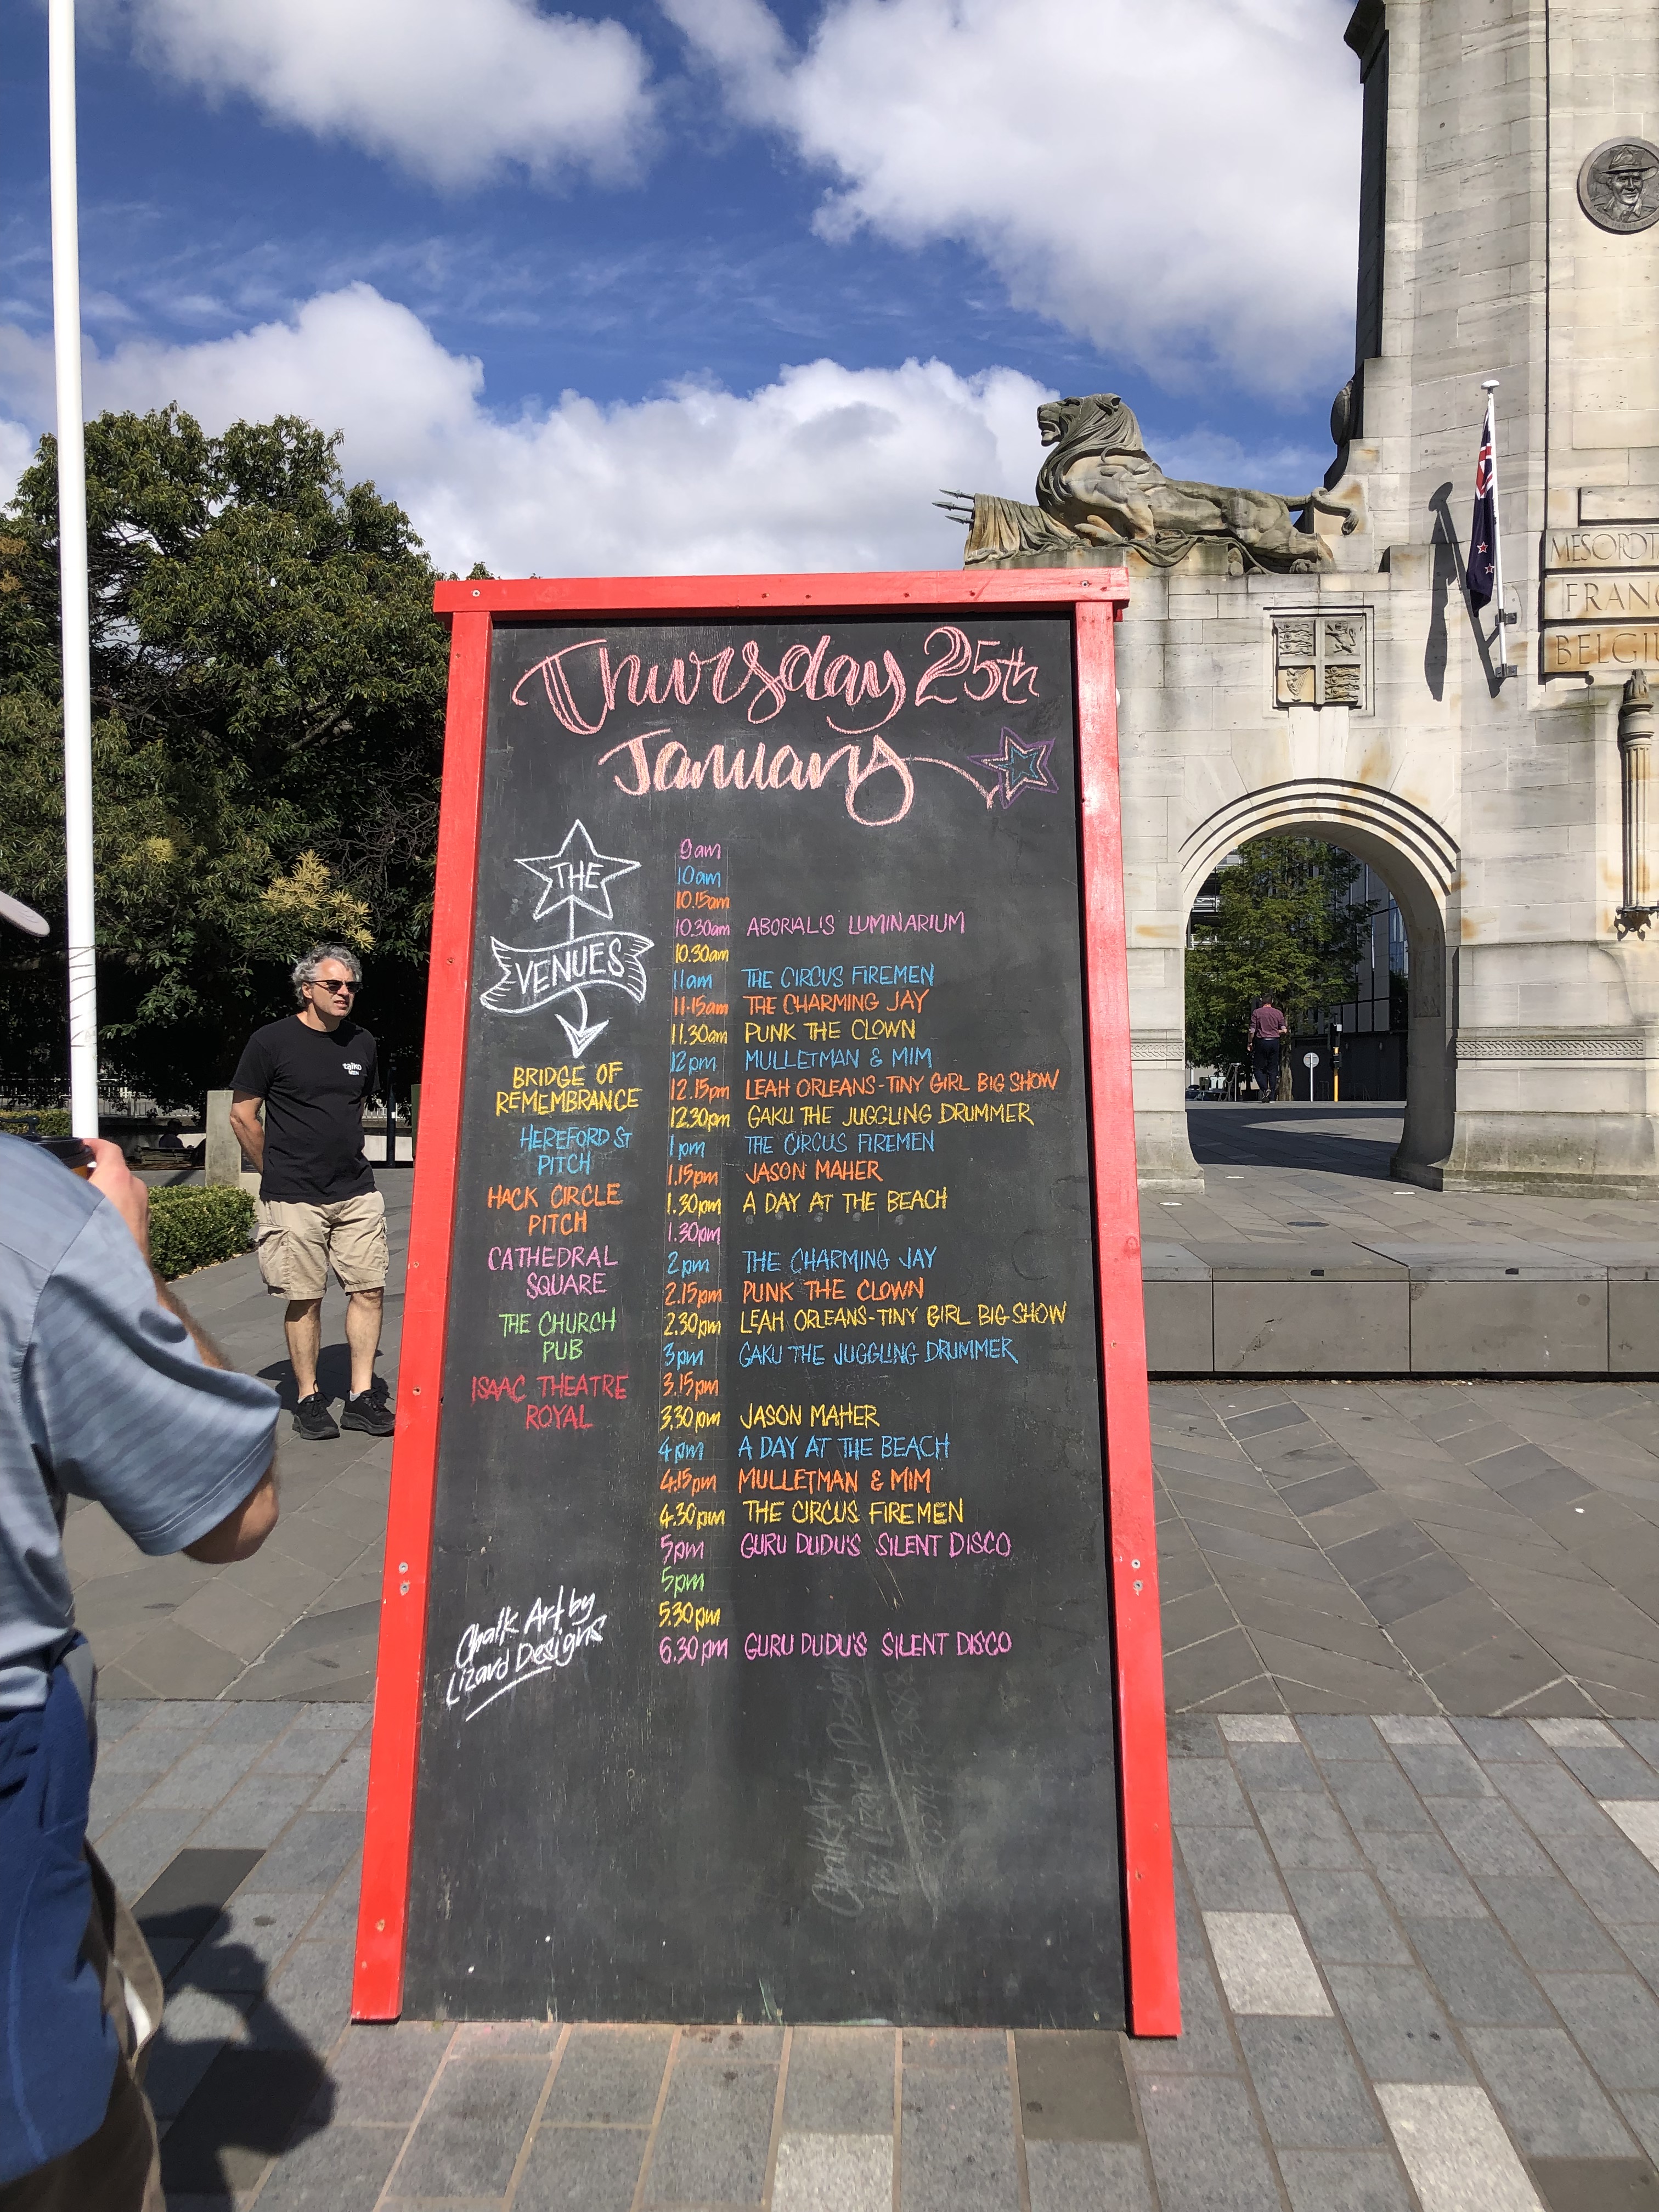 Thursday 25th
January
THE
VENUES
BRIDGE OF
REMEMBRANCE
HEREFORD ST
PITCH
HACK CIRCLE
PITCH
CATHEDRAL
SQUARE
THE CHURCH
PUB
ISAAC THEATRE
ROYAL
9am
10am
10.15am
10.30am ABORIALIS LUMINARIUM
10.30am
11am THE CIRCUS FIREMEN
11.15am THE CHARMING JAY
11.30am PUNK THE CLOWN
12pm MULLETMAN & MIM
12.15pm LEAH ORLEANS-TINY GIRL BIG SHOW
12.30pm GAKU THE JUGGLING DRUMMER
1pm THE CIRCUS FIREMEN
1.15pm JASON MAHER
1.30pm A DAY AT THE BEACH
1.30pm
2pm THE CHARMING JAY
2.15pm PUNK THE CLOWN
2.30pm LEAH ORLEANS-TINY GIRL BIG SHOW
3pm GAKU THE JUGGLING DRUMMER
3.15pm
3.30pm JASON MAHER
4pm A DAY AT THE BEACH
4.15pm MULLETMAN & MIM
4.30pm THE CIRCUS FIREMEN
5pm GURU DUDU'S SILENT DISCO
5pm
5.30pm
6.30pm GURU DUDU'S SILENT DISCO
Chalk Art by
Lizard Designs
Chalk Art
by Lizard Designs
BELGIU
FRANC
MESOPOT